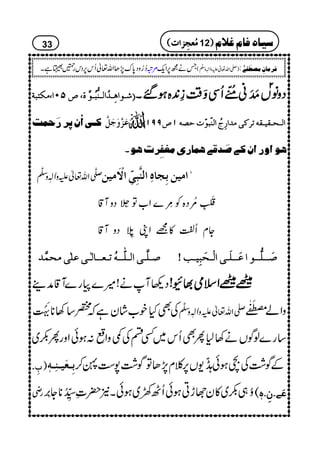 سیاہ فام غلام (12 مُعجِزات) 33
فرمانِ مصطفےٰ (صلی اللہ تعالیٰ علیہ والہٖ وسلم) جس نے مجھ پر ایک مرتبہ دُرُود پاک پڑھا اللہ تعالیٰ اُس پر دس رحمتیں بھیجتا ہے۔
دونوں مَدَنی مُنّے اُسی وَقت زِندہ ہوگئے۔ (شواہِدُ النُّبُوَّۃ، ص ۱۰۵، مکتبۃ
الحقیقہ ترکی مدارِجُ النّبوّت حصہ ۱ ص ۱۹۹) اللہ عَزَّوَجَلَّ کی اُن پر رَحمت
ہو اور ان کے صَدقے ہماری مغفِرت ہو۔
امین بِجاہِ النَّبِیِّ الْاَمین
قلبِ مُردہ کو مِرے اب تو جِلا دو آقا
جام اُلفت کا مجھے اپنی پِلا دو آقا
صَلُّوا عَلَی الْحَبِیب ! صلَّی اللّٰہُ تعالٰی علٰی محمَّد
میٹھے میٹھے اسلامی بھائیو! دیکھا آپ نے! میرے پیارے آقا مدینے
والے مصطفٰے صلی اللہ تعالیٰ علیہ والہٖ وسلم کی بھی کیا خوب شان ہے کہ مختصر سا کھانا بَہُت
سارے لوگوں نے کھا لیا پھر بھی اُس میں کسی قسم کی کمی واقع نہ ہوئی اور پھر بکری
کے گوشت کی بچی ہوئی ہڈّیوں پر کلام پڑھا تو گوشت پوست پہن کر بِعَیْنِہٖ (بِ۔
عَے۔نِ۔ہٖ) وُہی بکری کان جھاڑتی ہوئی اُٹھ کھڑی ہوئی۔ نیز حضرتِ سیِّدُنا جابر رضی